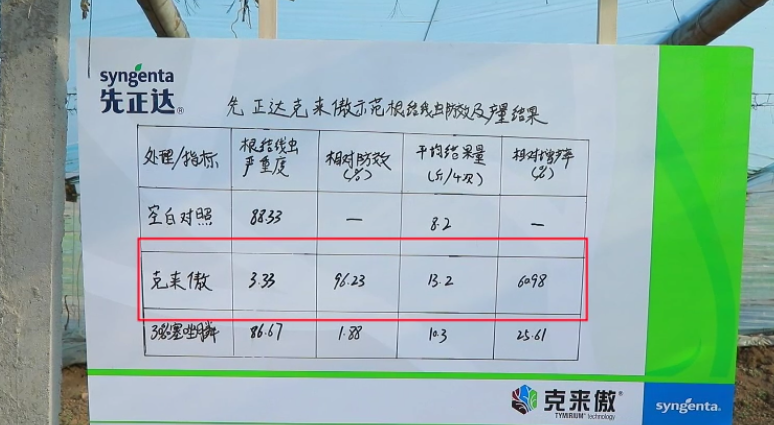 syngenta
先正达®
先正达克来傲示范根结线虫防效及产量结果
处理/指标 根结线虫严重度 相对防效(%) 平均结果量(斤/4次) 相对增产率(%)
空白对照 88.33 — 8.2 —
克来傲 3.33 96.23 13.2 60.98
3%噻唑膦 86.67 1.88 10.3 25.61
克来傲®
TYMIRIUM® technology
syngenta